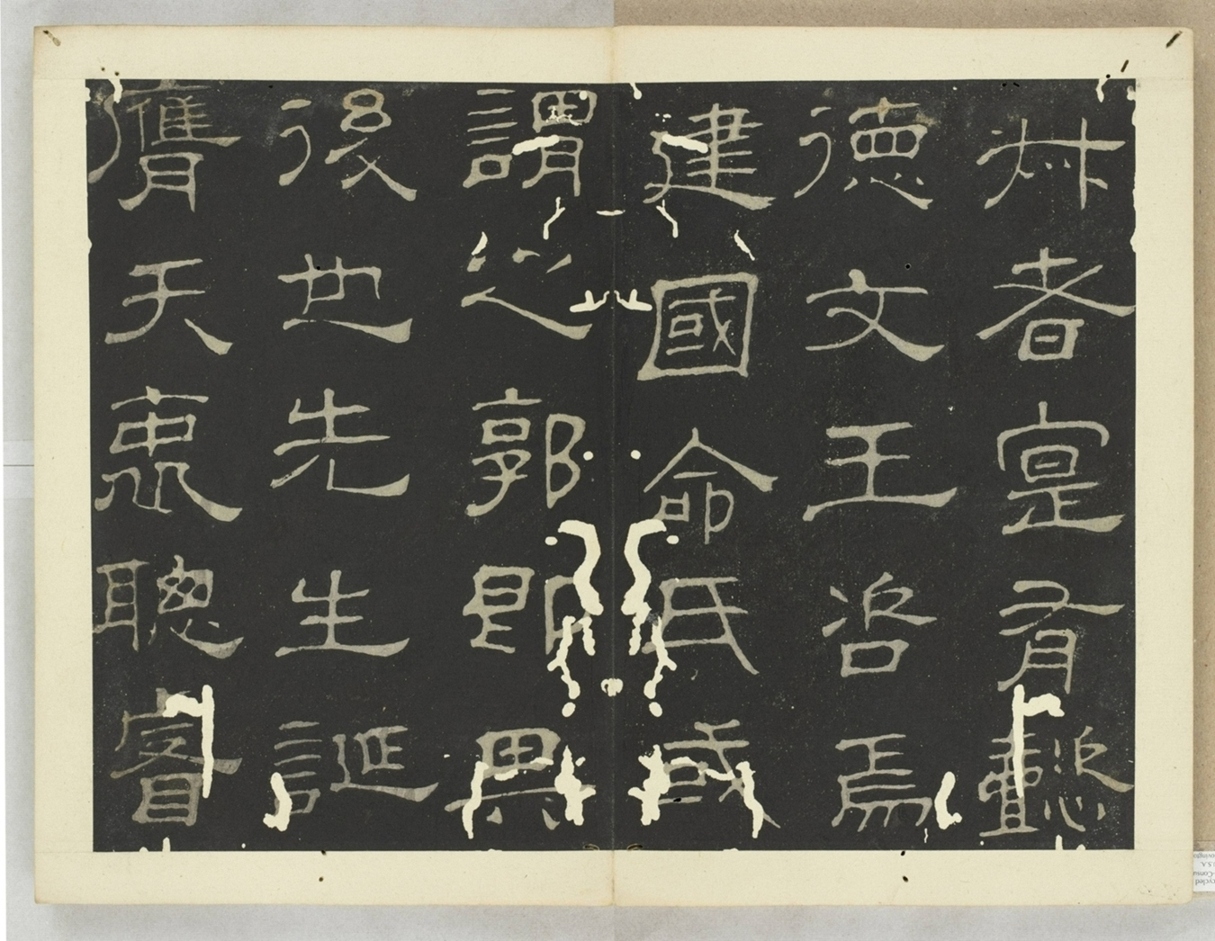 叔者寔有懿
德文王咨焉
建國命氏或
謂之郭即其
後也先生誕
膺天衷聰睿